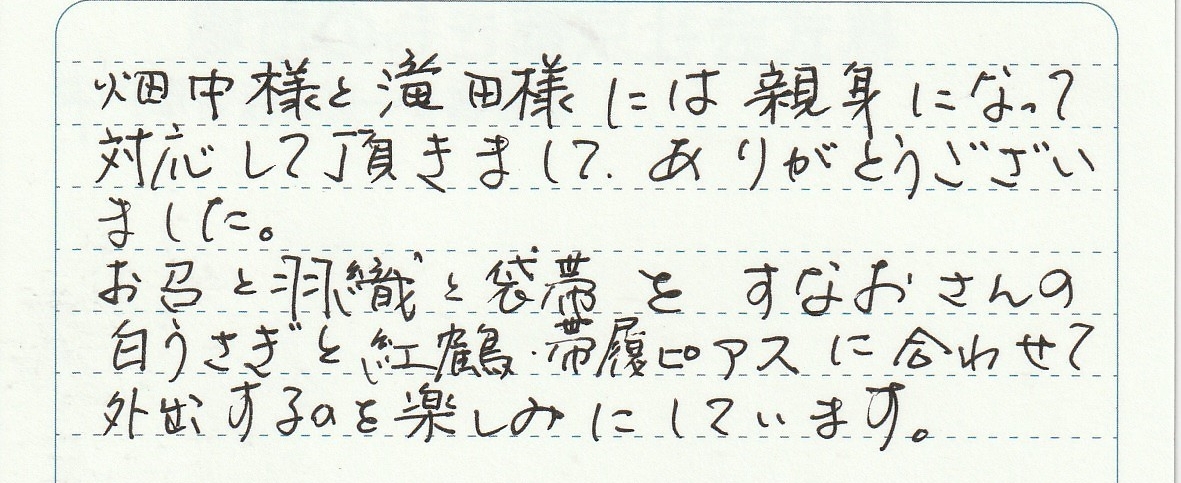 畑中様と滝田様には親身になって
対応して頂きまして、ありがとうござい
ました。
お召と羽織と袋帯を すなおさんの
白うさぎと紅鶴・帯履ピアスに合わせて
外出するのを楽しみにしています。